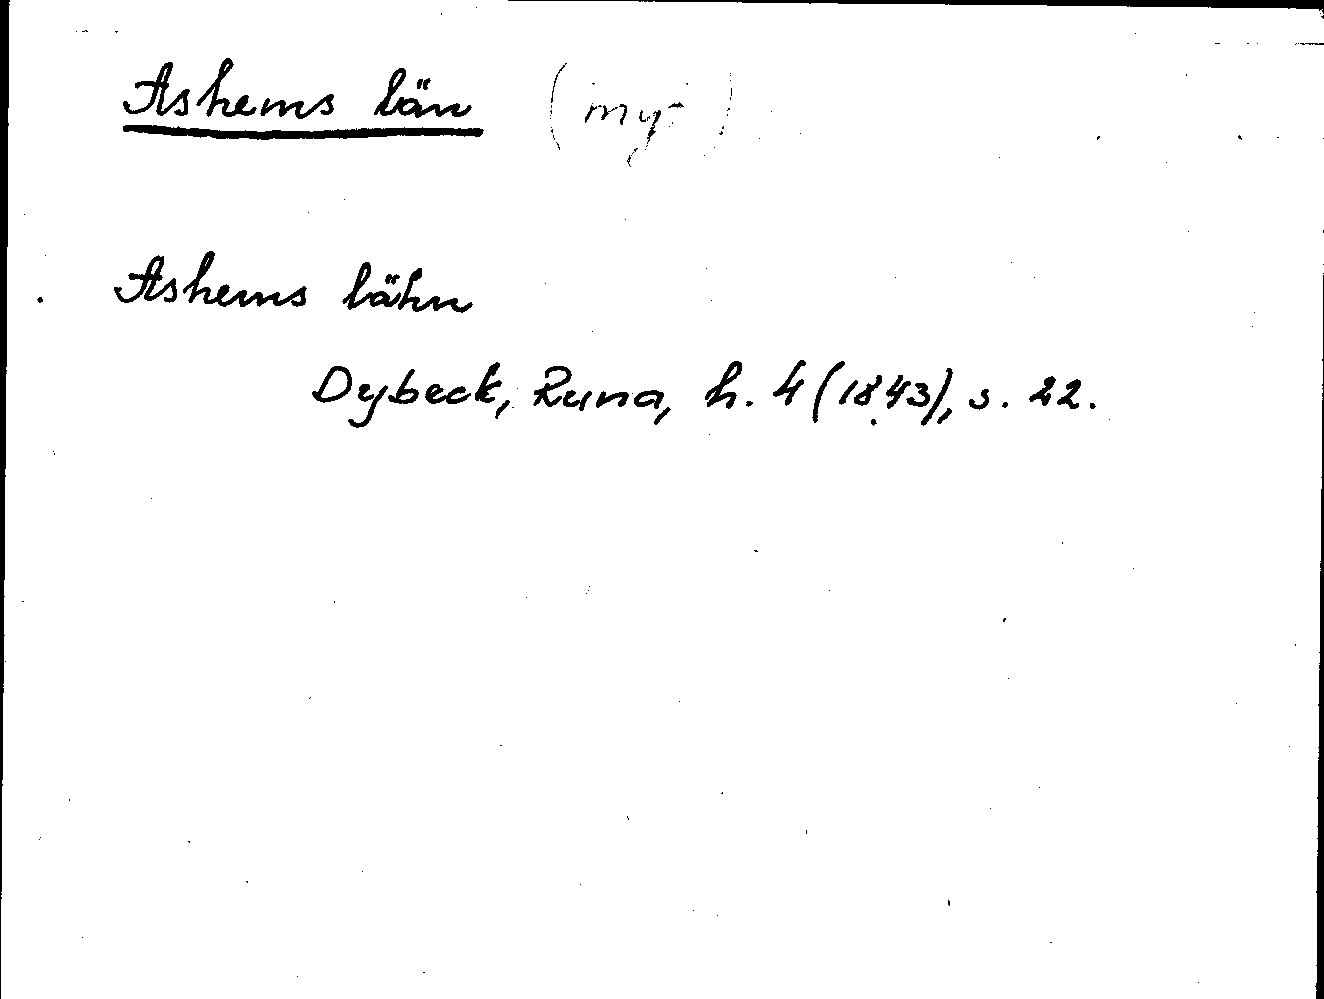 Ashems län (my-)
Ashems lähn
Dybeck, Runa, h. 4 (1843), s. 22.